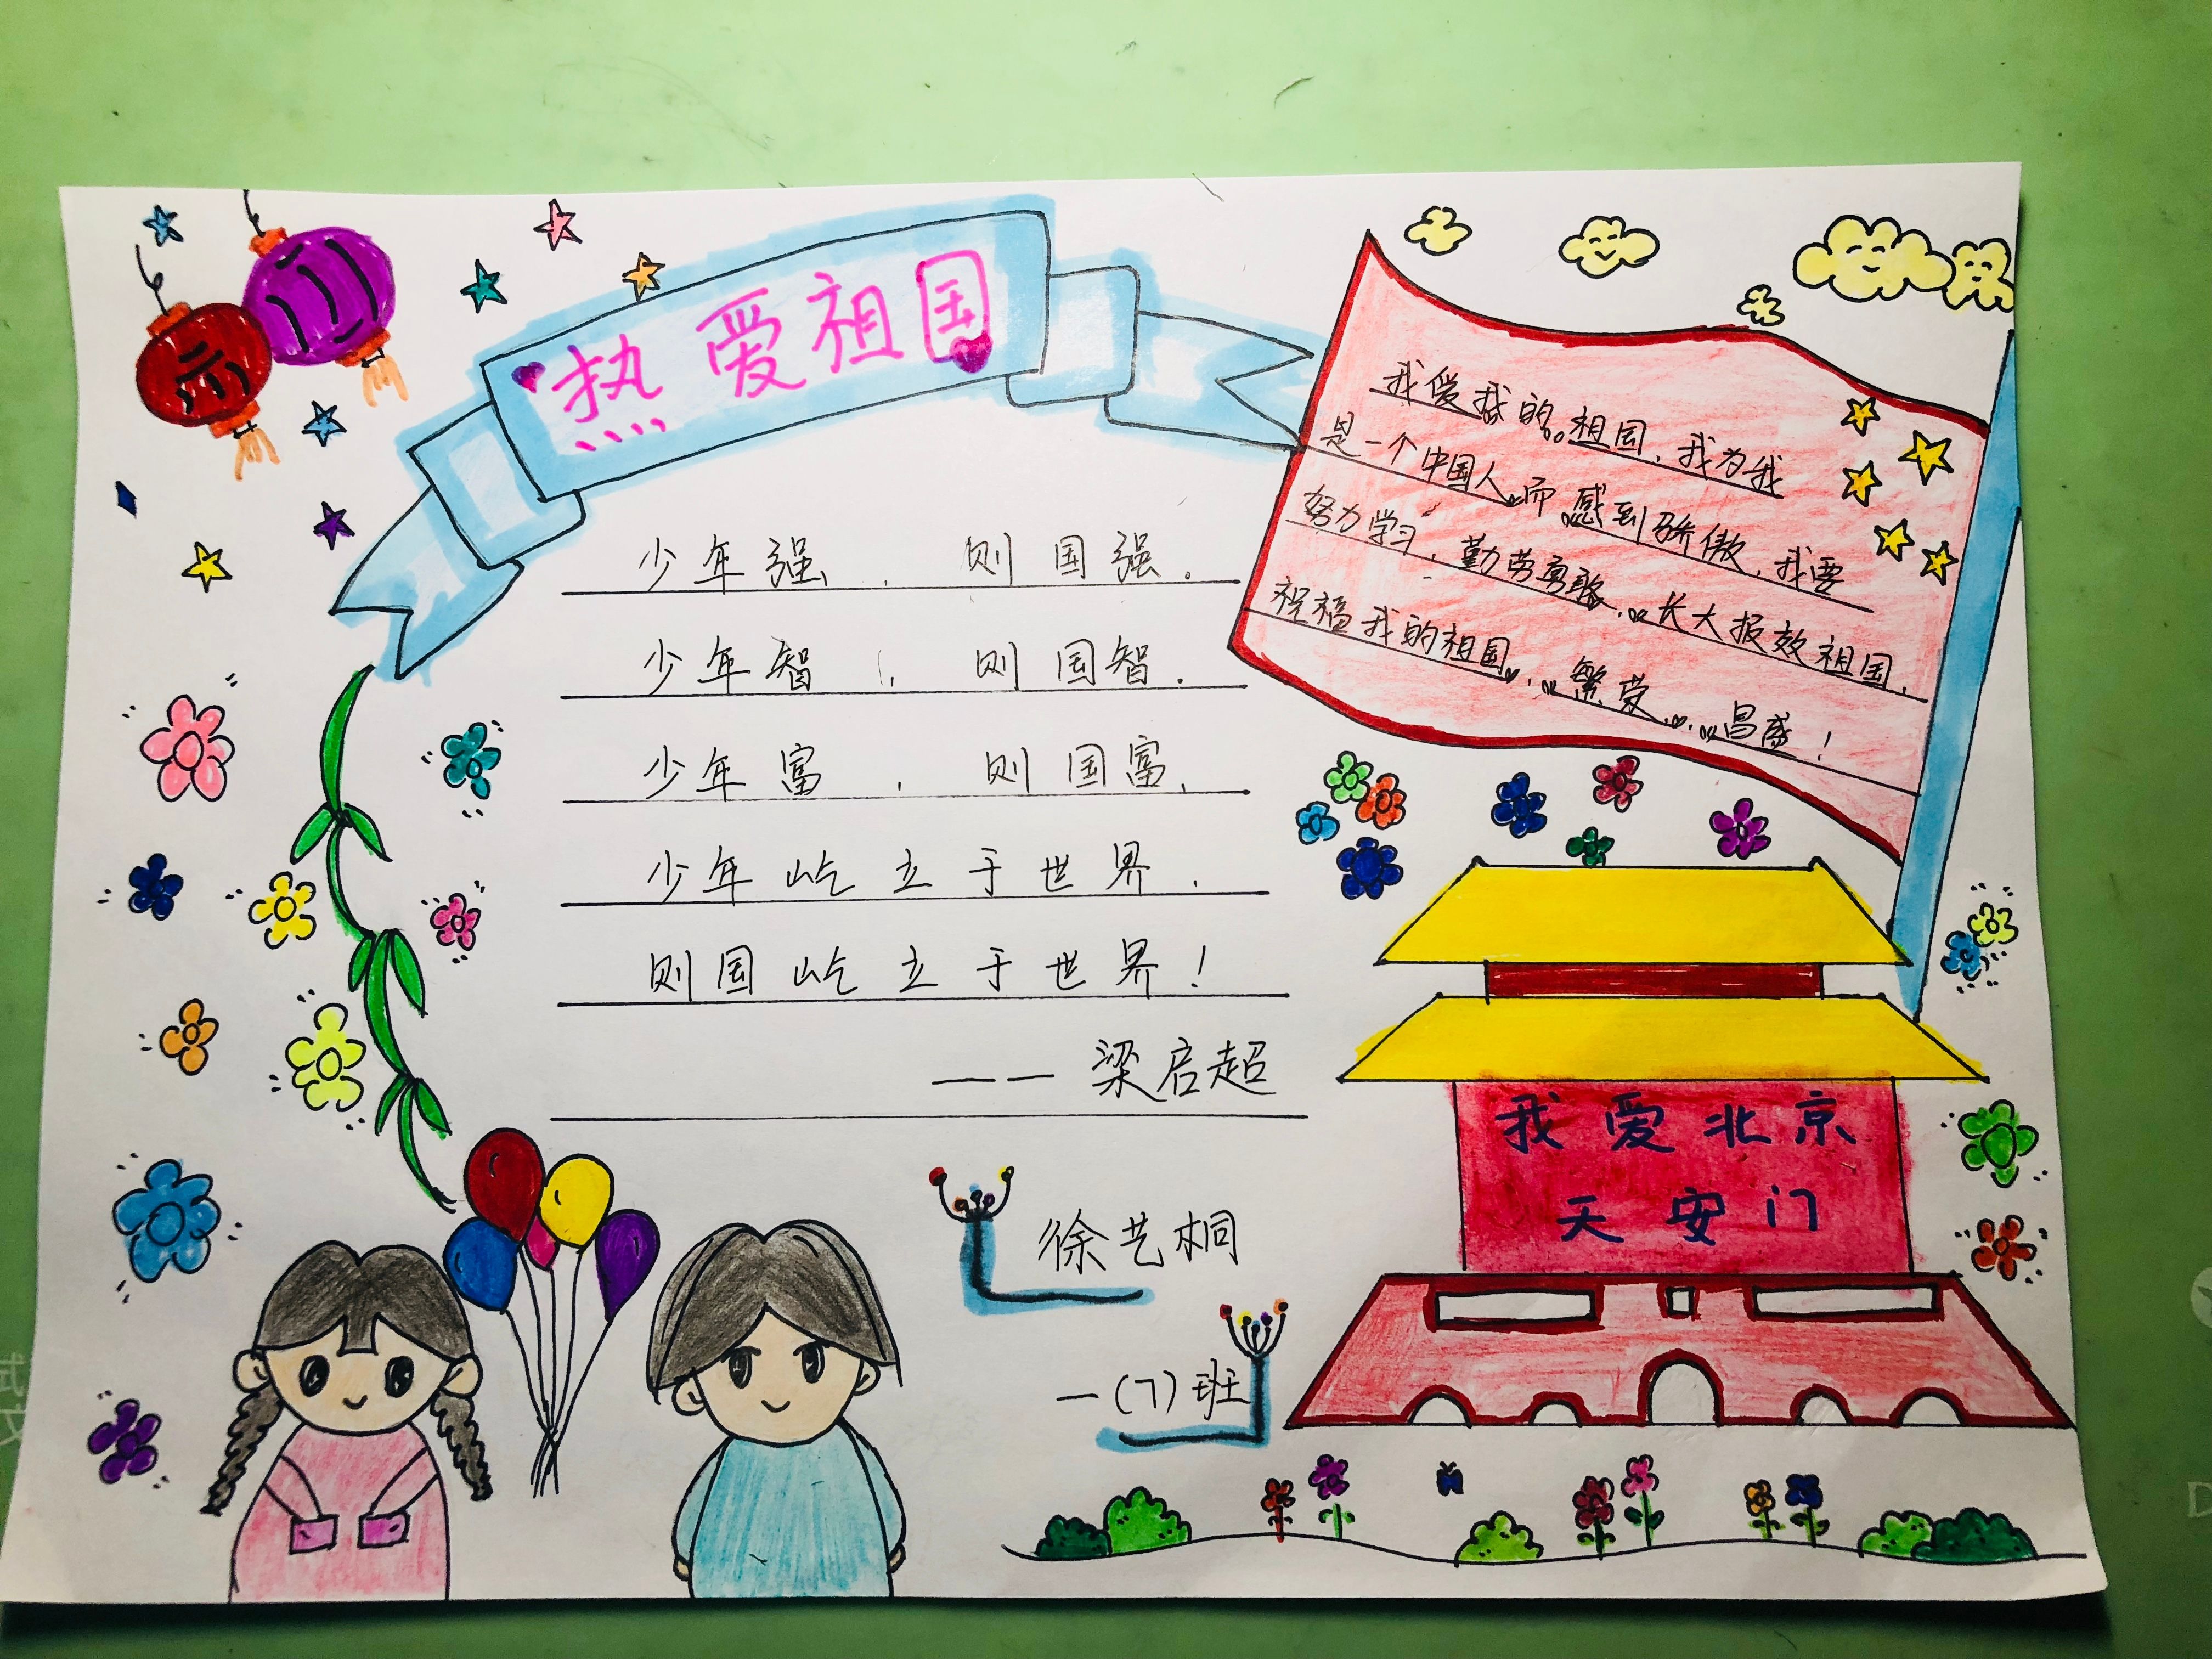 热爱祖国
少年强，则国强。
少年智，则国智.
少年富，则国富.
少年屹立于世界.
则国屹立于世界！
——梁启超
我爱我的祖国，我为我
是一个中国人而感到骄傲，我要
努力学习，勤劳勇敢，长大报效祖国，
祝福我的祖国，繁荣昌盛！
我爱北京
天安门
徐艺桐
一(7)班